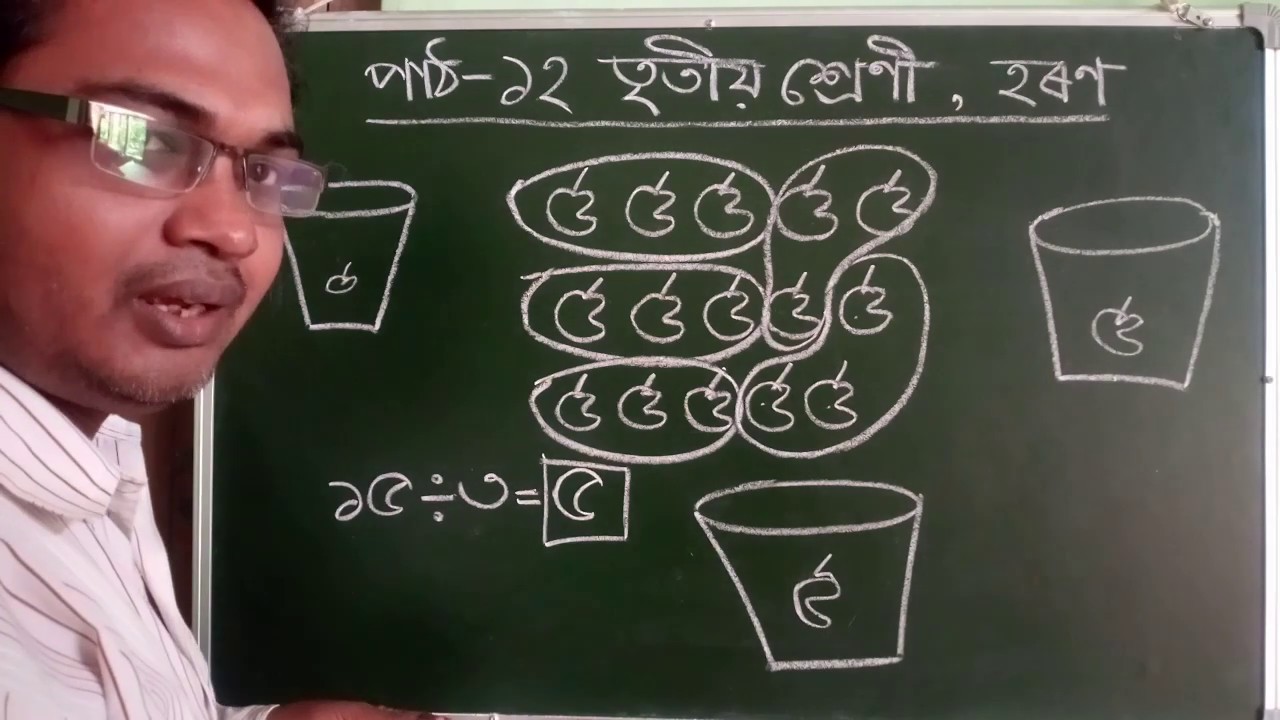 পাঠ-১২ তৃতীয় শ্ৰেণী, হৰণ
১৫÷৩=৫